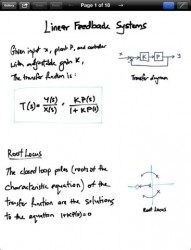 Page 1 of 18
Linear Feedback Systems
Given input x, plant P, and controller
with adjustable gain K,
The transfer function is:
x K P y
Transfer diagram
T(s) = Y(s)/X(s) = KP(s)/1+KP(s)
Root Locus
The closed loop poles (roots of the
characteristic equation) of the
transfer function are the solutions
to the equation 1+KP(s)=0
Root Locus